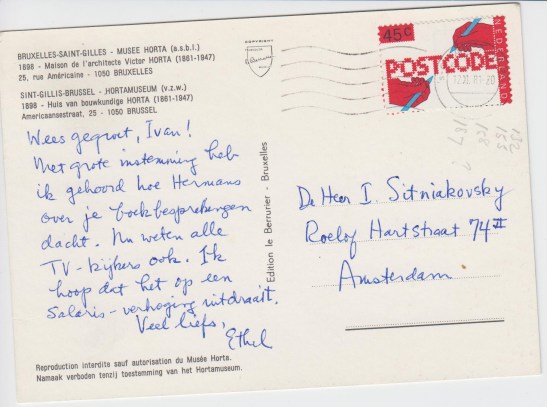 BRUXELLES-SAINT-GILLES - MUSEE HORTA (a.s.b.l.)
1898 - Maison de l'architecte Victor HORTA (1861-1947)
25, rue Américaine - 1050 BRUXELLES
SINT-GILLIS-BRUSSEL - HORTAMUSEUM (v.z.w.)
1898 - Huis van bouwkundige HORTA (1861-1947)
Americaansestraat, 25 - 1050 BRUSSEL
Wees gegroet, Ivan!
Met grote instemming heb
ik gehoord hoe Hermans
over je boekbesprekingen
dacht. Nu weten alle
TV-kijkers ook. Ik
hoop dat het op een
Salaris-verhoging uitdraait.
Veel liefs,
Ethel
Reproduction interdite sauf autorisation du Musée Horta.
Namaak verboden tenzij toestemming van het Hortamuseum.
Edition le Berrurier - Bruxelles
COPYRIGHT
45c
POSTCODE
NEDERLAND
De Heer I. Sitniakovsky
Roelof Hartstraat 74 II
Amsterdam